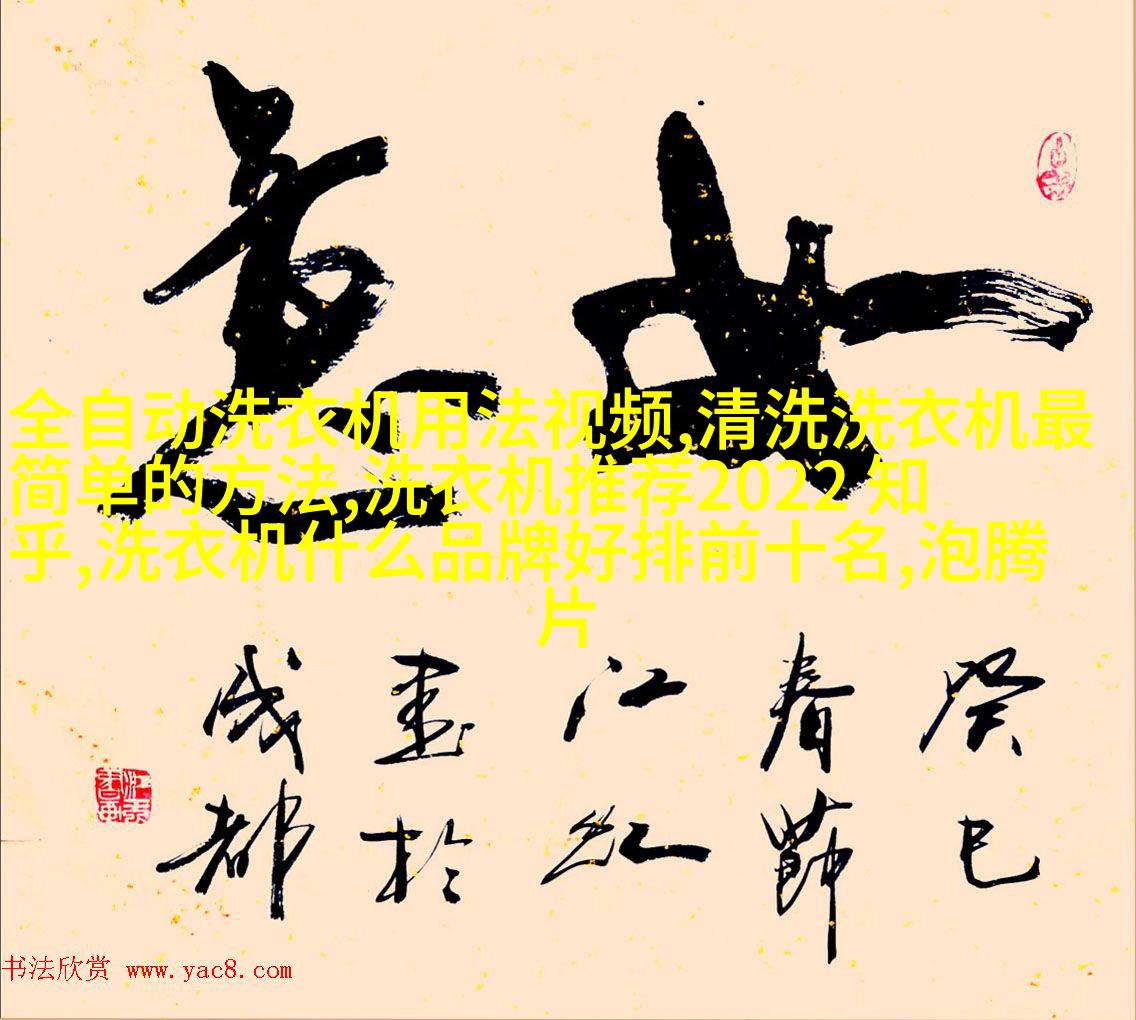 如意
全自动洗衣机用法视频,清洗洗衣机最
简单的方法,洗衣机推荐2022 知
乎,洗衣机什么品牌好排前十名,泡腾
片
癸巳
春节
江红
书于
成都
书法欣赏 www.yac8.com